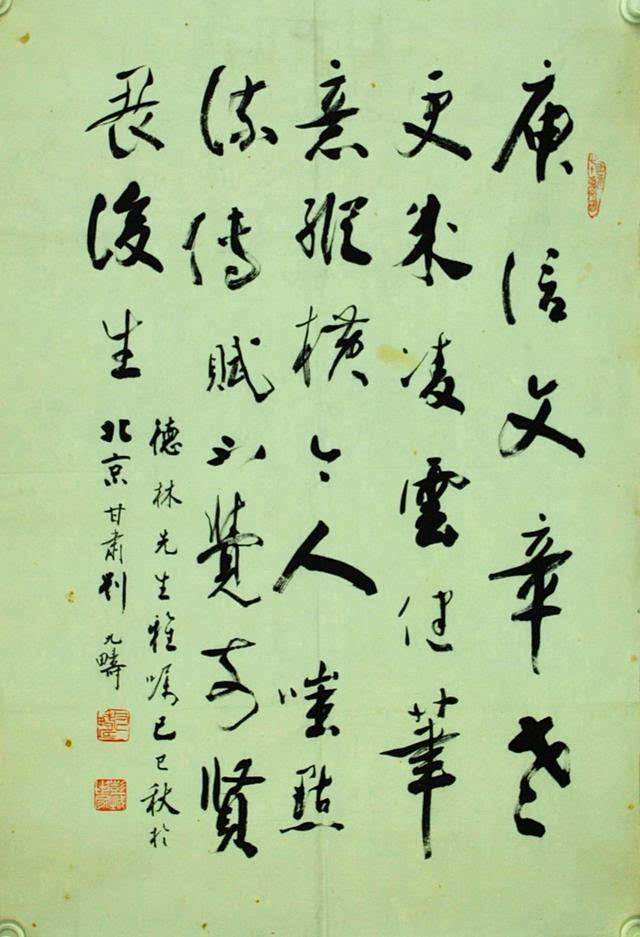 庾信文章老
更成凌雲健筆
意縱橫今人嗤點
流傳賦不覺前賢
畏後生
德林先生雅嘱己巳秋於
北京甘肃刘九疇